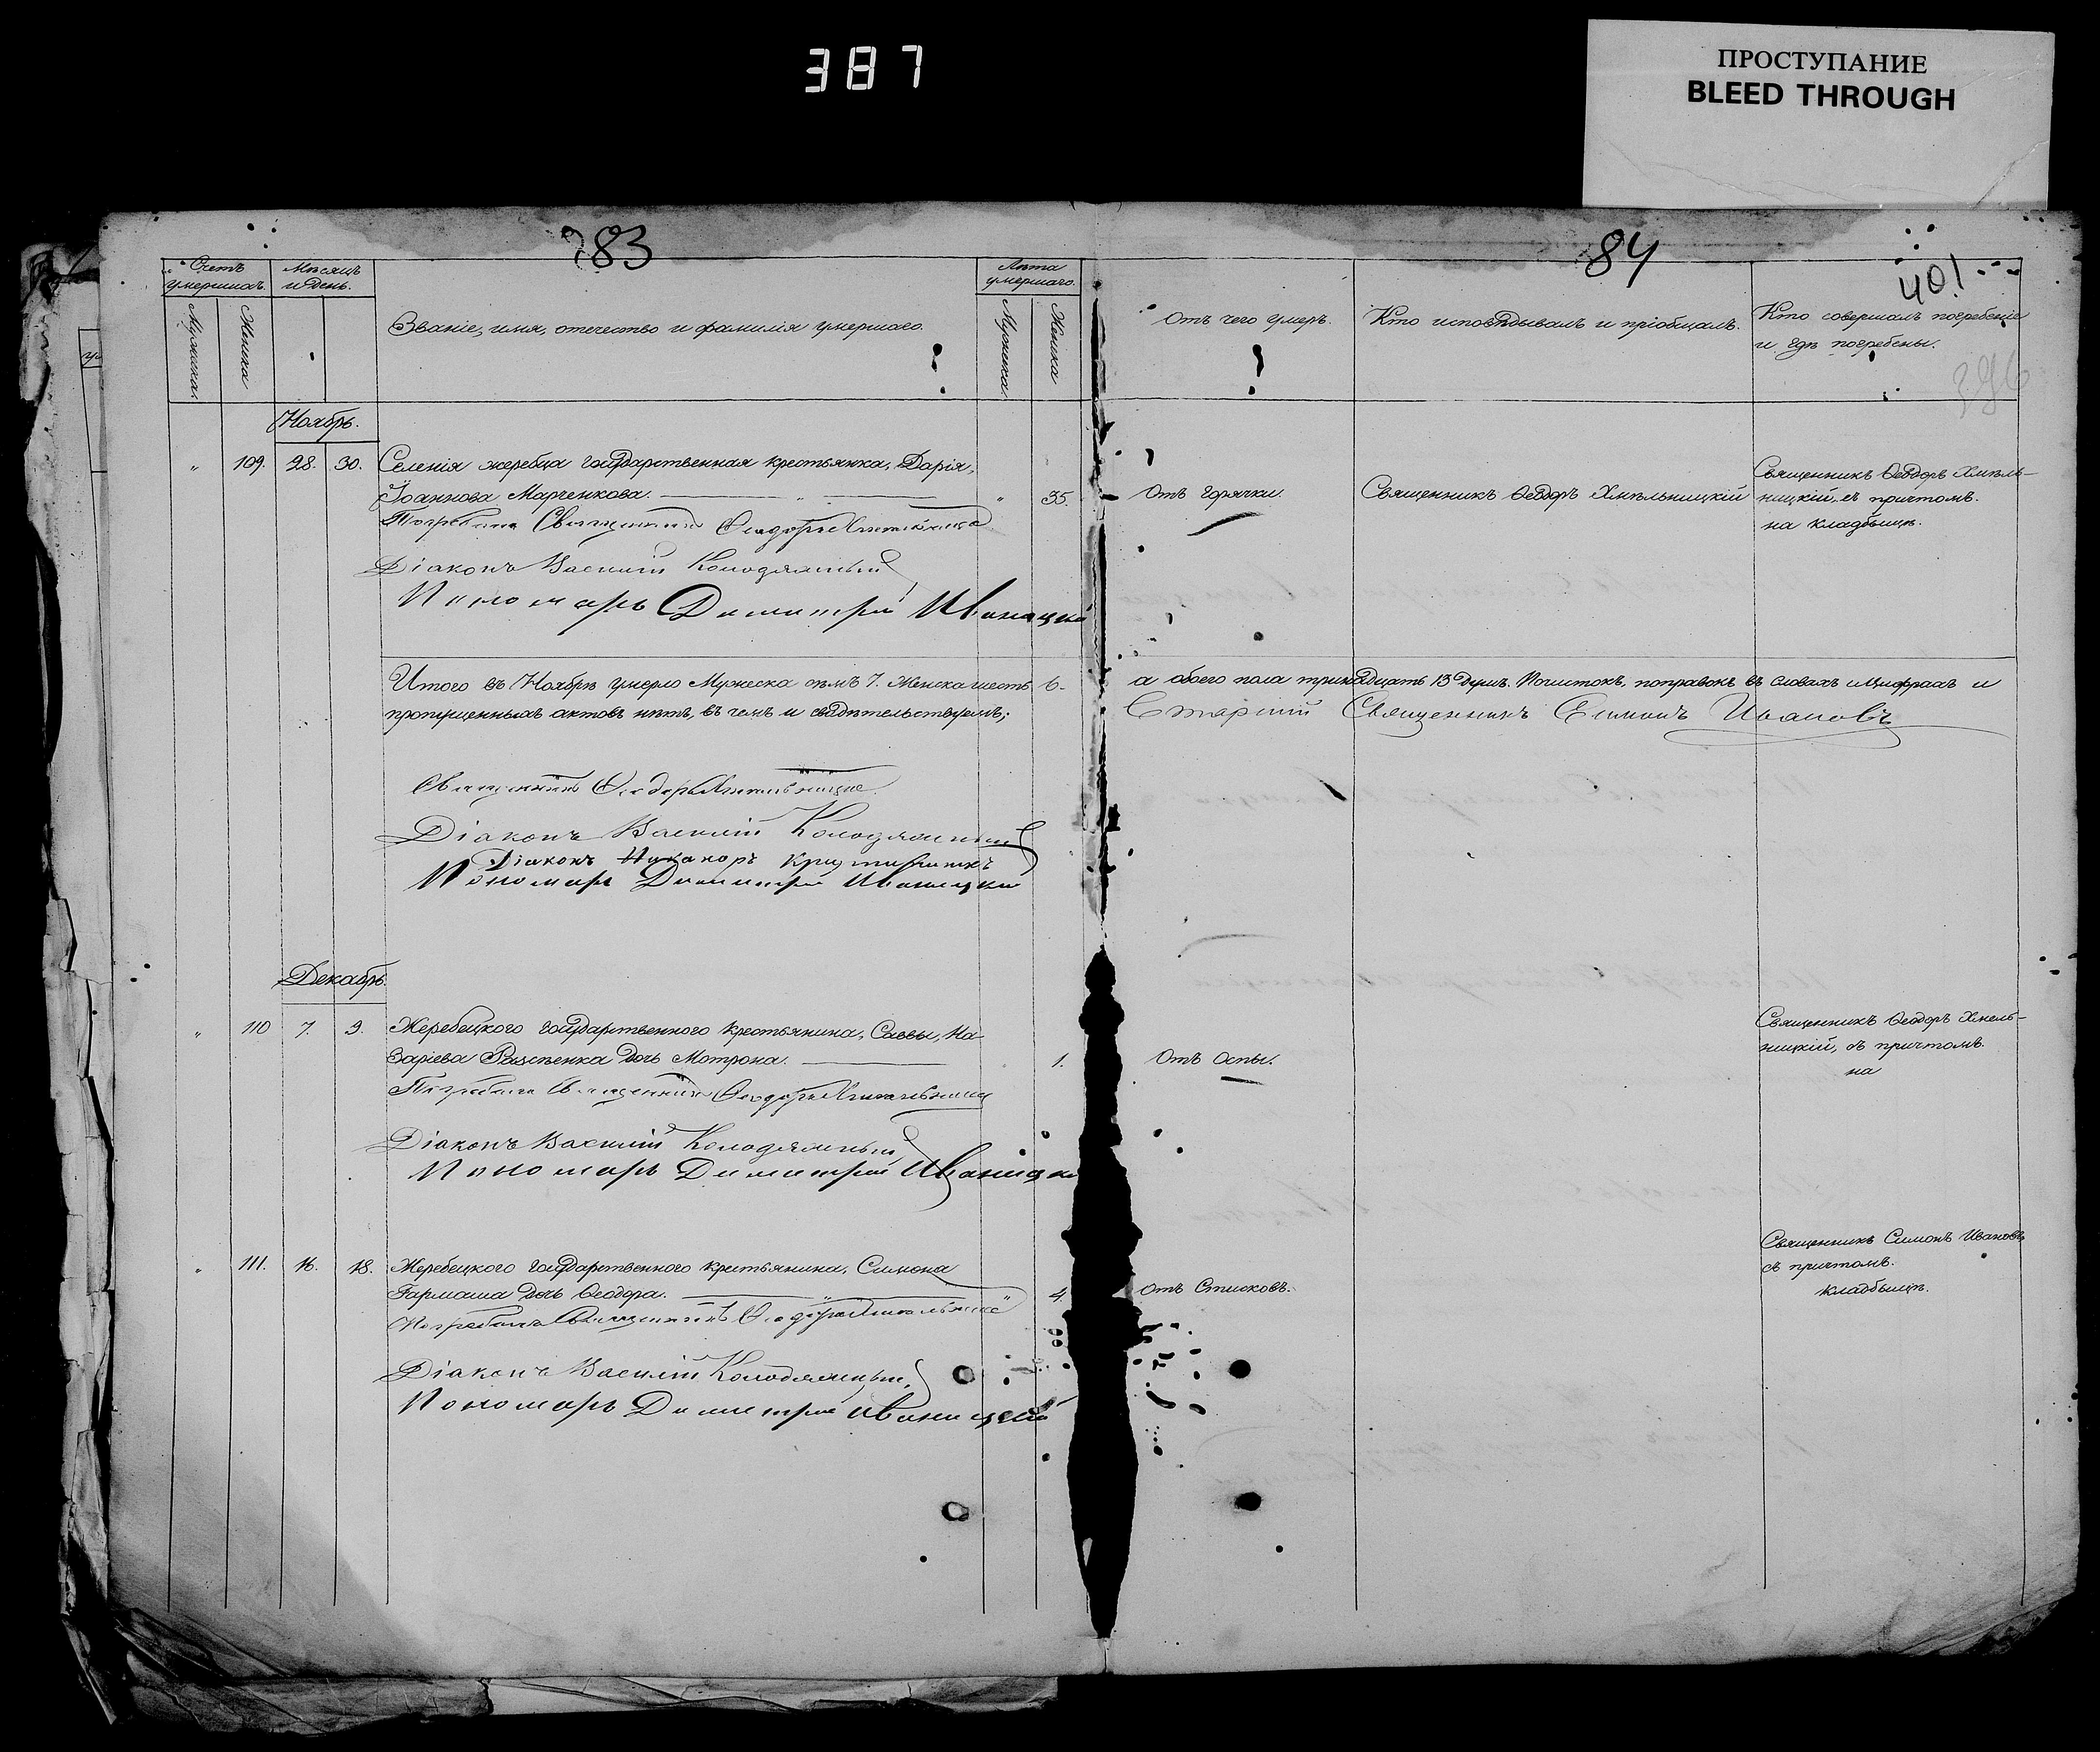 387
ПРОСТУПАНИЕ
BLEED THROUGH
283
84
401
396
Счетъ умершихъ.
Мѣсяцъ и день.
Званіе, имя, отечество и фамилія умершаго.
Лѣта умершаго.
Отъ чего умеръ.
Кто исповѣдывалъ и пріобщалъ.
Кто совершалъ погребеніе
и гдѣ погребены.
Мужеска
Женска
Мужеска
Женска
Ноябрь.
" 109. 28. 30. Селенія жеребца государственная крестьянка, Дарія,
Іоаннова Марченкова. " 35. Отъ горячки. Священникъ Ѳеодоръ Хмѣльницкій
Священникъ Ѳеодоръ Хмѣль-
ницкій, съ причтомъ.
на кладбищѣ.
Погребалъ Священникъ Ѳеодоръ Хмѣльницкій
Діаконъ Василій Колодяжный
Пономарь Димитрій Иваницкій
Итого въ Ноябрѣ умерло Мужеска семъ 7. Женска шесть 6- а обоего пола тринадцать 13 душъ. Почистокъ, поправокъ въ словахъ и цыфрахъ и
пропущенныхъ актовъ нѣтъ, въ чемъ и свидѣтельствуемъ;
Старшій Священникъ Симонъ Ивановъ
Священникъ Ѳеодоръ Хмѣльницкій
Діаконъ Василій Колодяжный
Діаконъ Никаноръ
Пономарь Димитрій Иваницкій
Декабрь.
" 110 7. 9. Жеребецкого государственного крестьянина, Саввы, На-
заріева дочь Мотрона. 1. Отъ оспы.
Священникъ Ѳеодоръ Хмель-
ницкій, съ причтомъ.
на
Погребалъ Священникъ Ѳеодоръ Хмѣльницкій
Діаконъ Василій Колодяжный
Пономарь Димитрій Иваницкій
" 111. 16. 18. Жеребецкого государственного крестьянина, Симона
Гармаша дочь Ѳеодора. " 4. Отъ Стисковъ.
Священникъ Симонъ Ивановъ,
съ причтомъ.
кладбищѣ.
Погребалъ Священникъ Ѳеодоръ Хмѣльницкій
Діаконъ Василій Колодяжный
Пономарь Димитрій Иваницкій